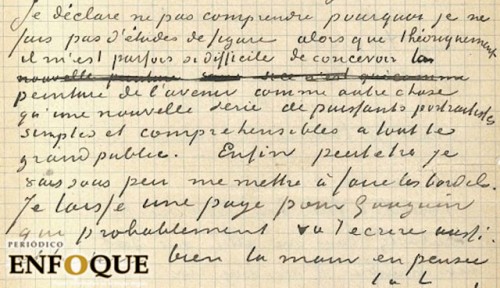 Je déclare ne pas comprendre pourquoi je ne
fais pas d'études de figure alors que théoriquement
il m'est parfois si difficile de concevoir la
nouvelle peinture
peinture de l'avenir comme autre chose
qu'une nouvelle série de puissants portraitistes
simples et compréhensibles a tout le
grand public. Enfin peutetre je
vais sous peu me mettre à faire les bordel.
Je laisse une page pour Gauguin
qui probablement va t'ecrire aussi.
bien la main en pensée
PERIÓDICO
ENFOQUE